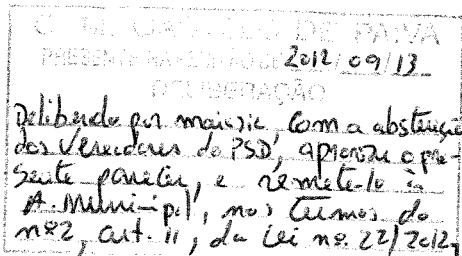 C. M. CASTELO DE PAIVA
PRESENTE NA REUNIÃO DE 2012/09/13
DELIBERAÇÃO
Deliberado por maioria, com a abstenção
dos Vereadores do PSD, aprovar o pre-
sente parecer, e remetê-lo à
A. Municipal, nos termos do
nº2, art. 11, da Lei nº. 22/2012,